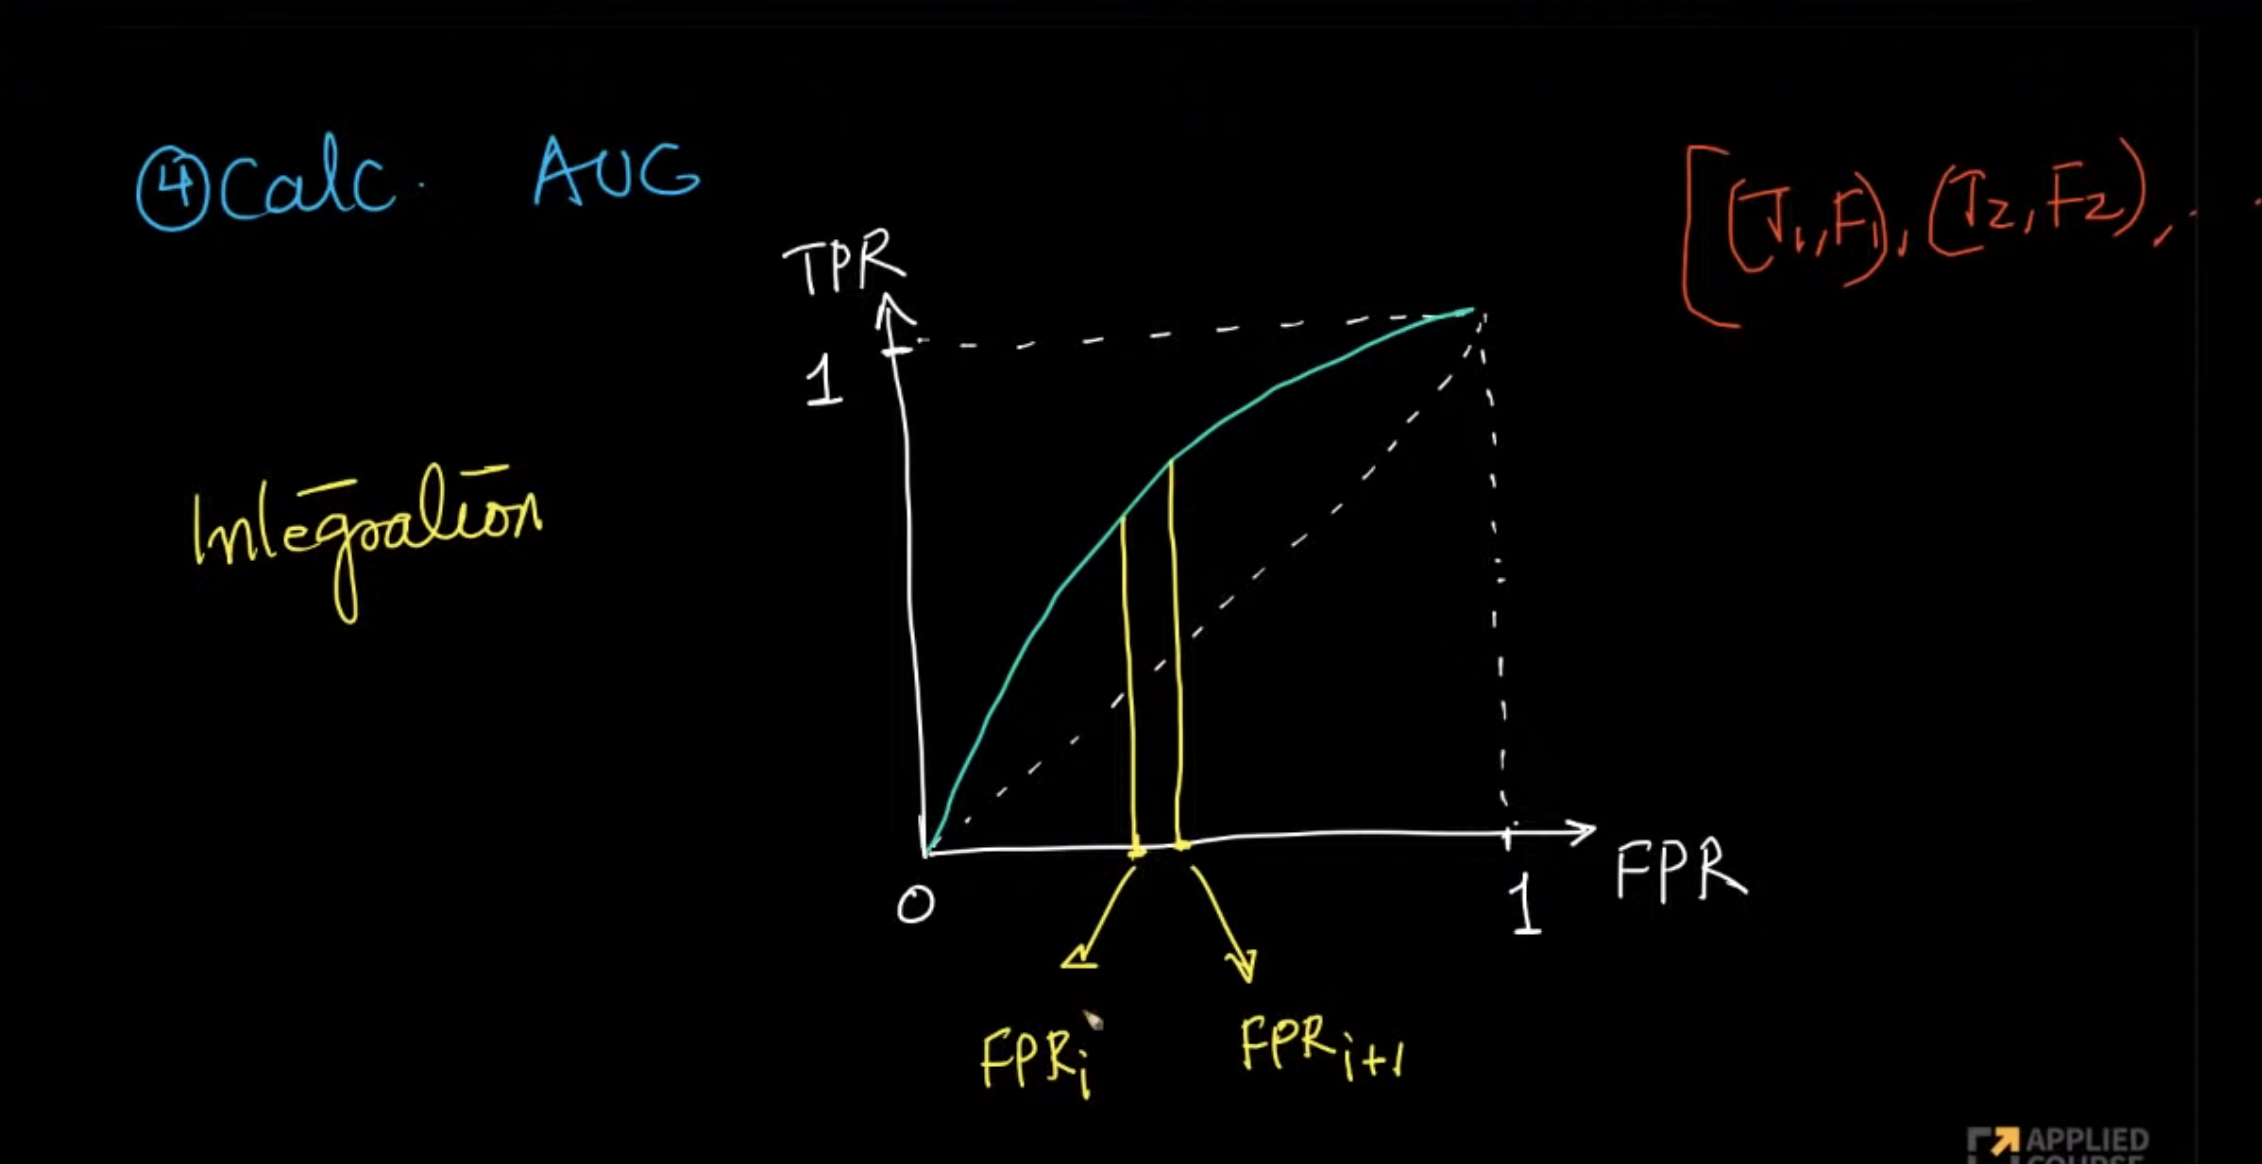 ④ Calc. AUC
[(T₁,F₁), (T₂,F₂), ..
TPR
1
Integration
0
1
FPR
FPRᵢ
FPRᵢ₊₁
APPLIED
COURSE